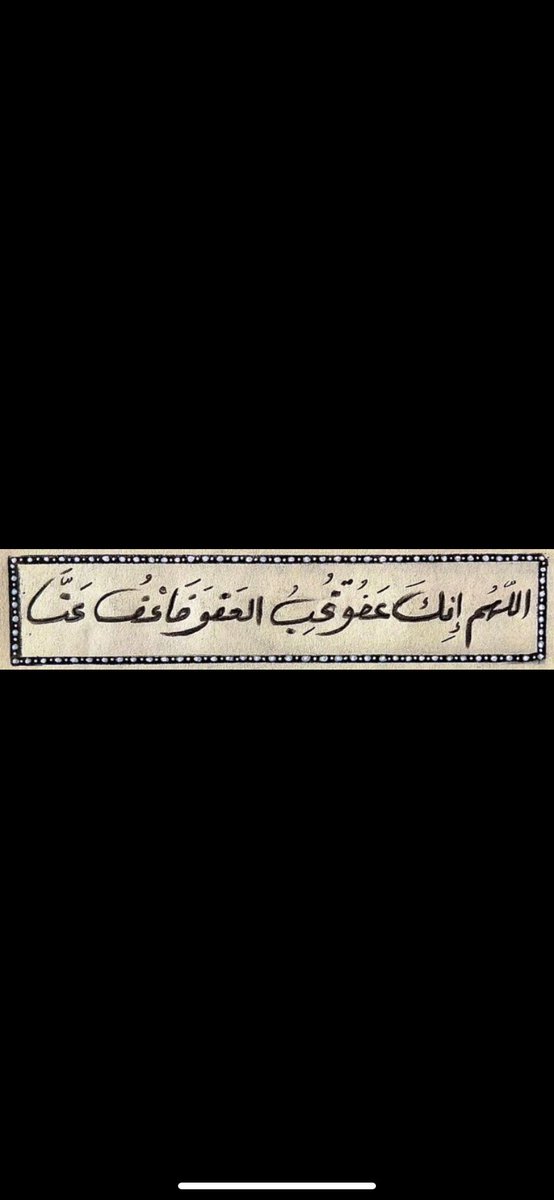 اللَّهُم إِنكَ عَفُوٌ تُحِبُ العَفوَ فَاعْفُ عَنَّا